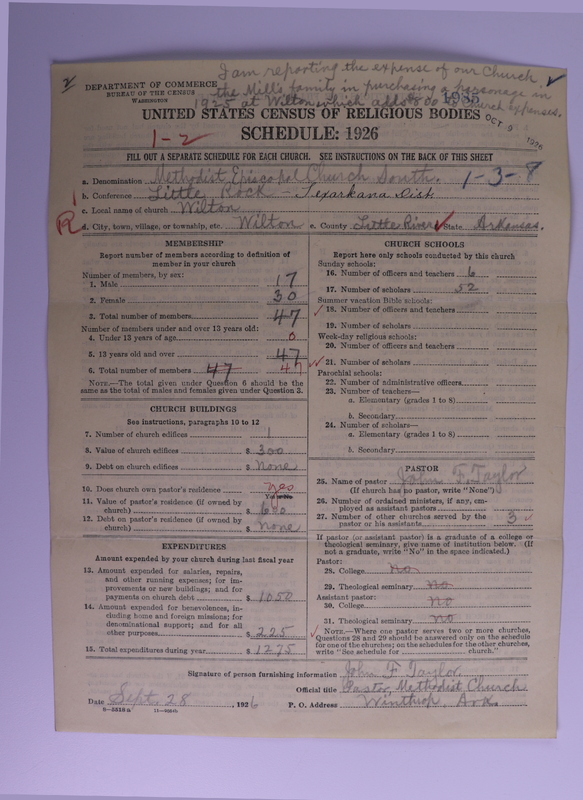 I am reporting the expense of our Church
the Mills family in purchasing a parsonage in
1925 at Wilton which adds $800 to Church expenses.
DEPARTMENT OF COMMERCE
BUREAU OF THE CENSUS
WASHINGTON
OCT 9 1926
UNITED STATES CENSUS OF RELIGIOUS BODIES
SCHEDULE: 1926
1-2
FILL OUT A SEPARATE SCHEDULE FOR EACH CHURCH. SEE INSTRUCTIONS ON THE BACK OF THIS SHEET
a. Denomination Methodist Episcopal Church South. 1-3-8
b. Conference Little Rock - Texarkana Dist
c. Local name of church Wilton
d. City, town, village, or township, etc. Wilton e. County Little River State Arkansas.
MEMBERSHIP
Report number of members according to definition of
member in your church
Number of members, by sex:
1. Male 17
2. Female 30
3. Total number of members 47
Number of members under and over 13 years old:
4. Under 13 years of age 0
5. 13 years old and over 47
6. Total number of members 47 47
NOTE.—The total given under Question 6 should be
the same as the total of males and females given under Question 3.
CHURCH BUILDINGS
See instructions, paragraphs 10 to 12
7. Number of church edifices 1
8. Value of church edifices $ 300
9. Debt on church edifices $ None
10. Does church own pastor's residence yes
11. Value of pastor's residence (if owned by
church) $ 600
12. Debt on pastor's residence (if owned by
church) $ None
EXPENDITURES
Amount expended by your church during last fiscal year
13. Amount expended for salaries, repairs,
and other running expenses; for im-
provements or new buildings; and for
payments on church debt $ 1050
14. Amount expended for benevolences, in-
cluding home and foreign missions; for
denominational support; and for all
other purposes $ 225
15. Total expenditures during year $ 1275
CHURCH SCHOOLS
Report here only schools conducted by this church
Sunday schools:
16. Number of officers and teachers 6
17. Number of scholars 52
Summer vacation Bible schools:
18. Number of officers and teachers
19. Number of scholars
Week-day religious schools:
20. Number of officers and teachers
21. Number of scholars
Parochial schools:
22. Number of administrative officers
23. Number of teachers—
a. Elementary (grades 1 to 8)
b. Secondary
24. Number of scholars—
a. Elementary (grades 1 to 8)
b. Secondary
PASTOR
25. Name of pastor John F. Taylor
(If church has no pastor, write "None")
26. Number of ordained ministers, if any, em-
ployed as assistant pastors
27. Number of other churches served by the
pastor or his assistants 3
If pastor (or assistant pastor) is a graduate of a college or
theological seminary, give name of institution below. (If
not a graduate, write "No" in the space indicated.)
Pastor:
28. College no
29. Theological seminary no
Assistant pastor:
30. College no
31. Theological seminary no
NOTE.—Where one pastor serves two or more churches,
Questions 28 and 29 should be answered only on the schedule
for one of the churches; on the schedules for the other churches,
write "See schedule for church."
Signature of person furnishing information John F Taylor
Official title Pastor, Methodist Church
Date Sept. 28, 1926 P. O. Address Winthrop Ark.